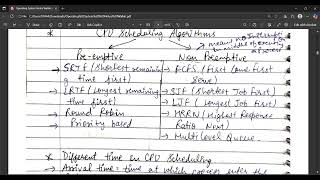 * CPU Scheduling Algorithms
Pre-emptive
Non Preemptive
SRTF (Shortest remaining
time first)
LRTF (Longest remaining
time first)
Round Robin
Priority based
FCFS (First Come First
Serve)
SJF (Shortest Job First)
LJF (Longest Job First)
HRRN (Highest Response
Ratio Next)
Multilevel Queue
* Different time in CPU Scheduling
Arrival time : time at which process enter the